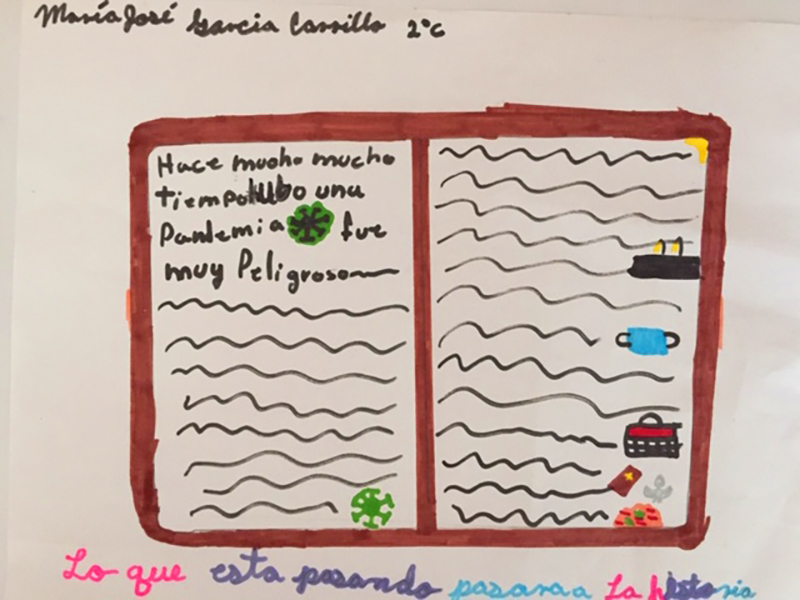 María José Garcia Carrillo 2°C
Hace mucho mucho
tiempo hubo una
Pandemia fue
muy Peligroso
Lo que esta pasando pasara a la historia